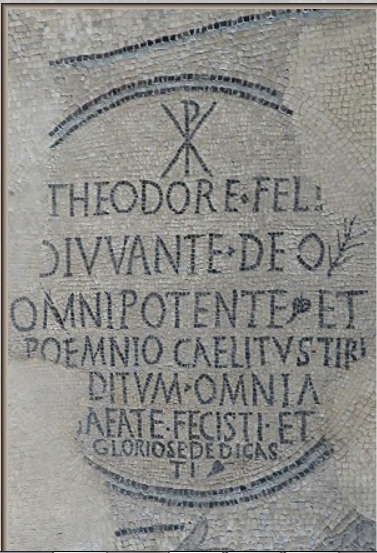 ☧
THEODORE·FELI
DIVVANTE·DE O
OMNIPOTENTE ET
POEMNIO CAELITVS·TIBI
DITVM·OMNIA
AEATE·FECISTI·ET
GLORIOSEDEDICAS
TI